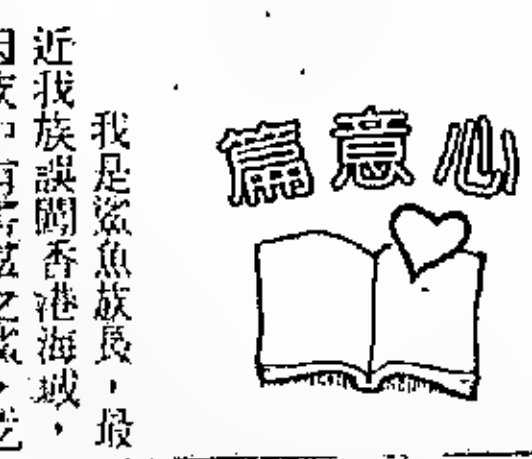 心意篇
我是鯊魚族長，最
近我族誤闖香港海域，